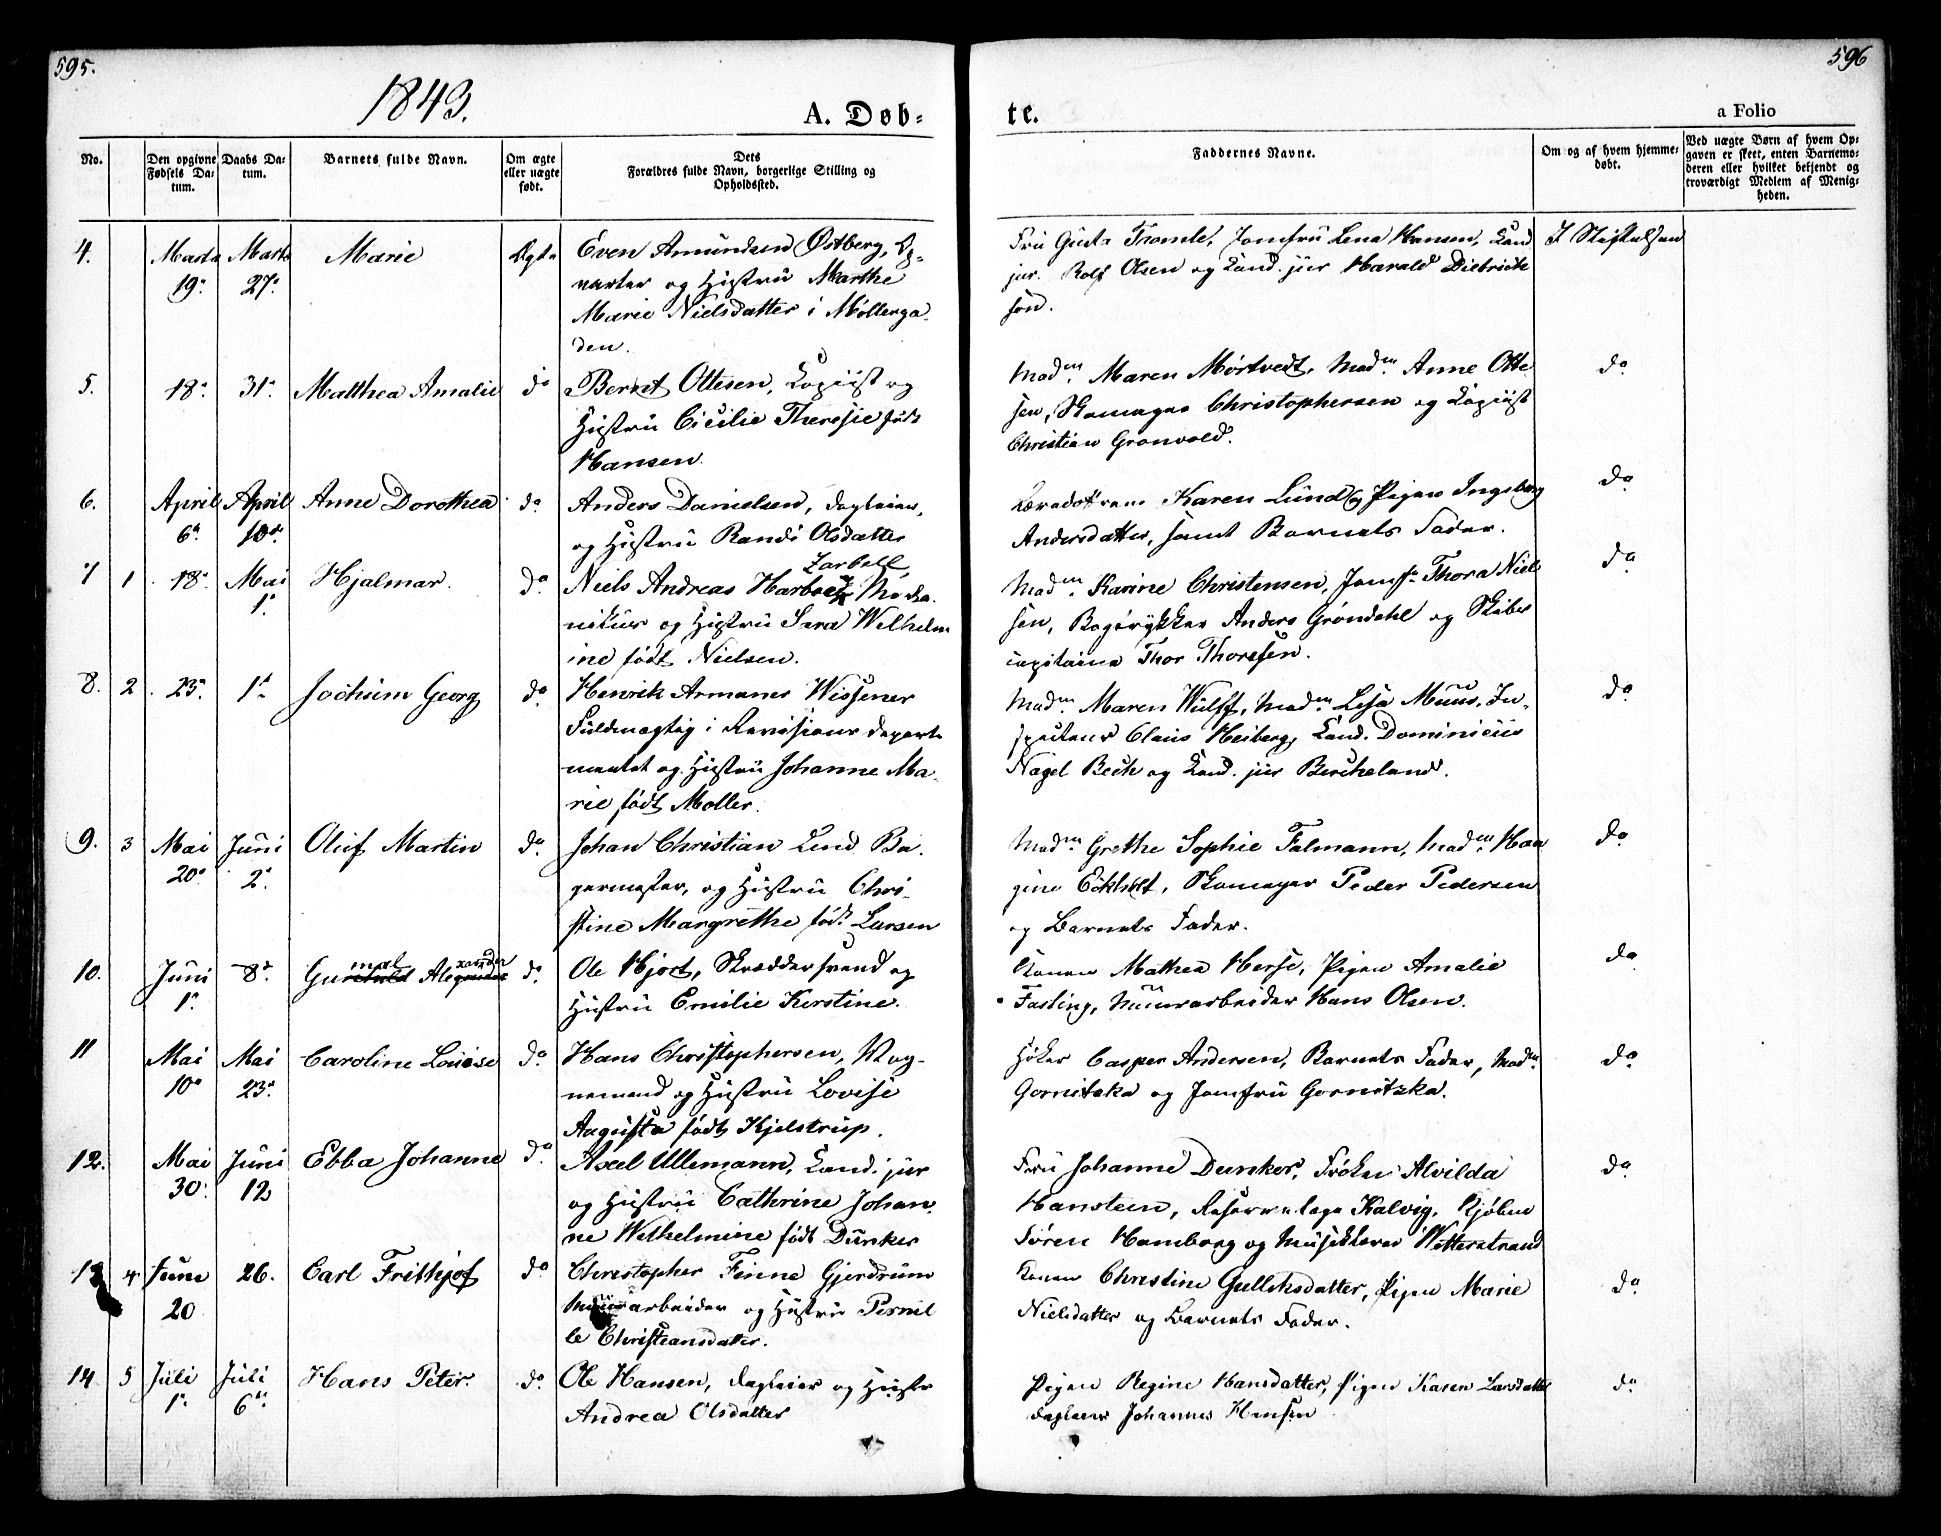 595.
596
1843.
A. Døb-
te.
a Folio
No.
Den opgivne Fødsels Datum.
Daabs Datum.
Barnets fulde Navn.
Om ægte eller uægte født.
Dets Forældres fulde Navn, borgerlige Stilling og Opholdssted.
Faddernes Navne.
Om og af hvem hjemmedøbt.
Ved uægte Børn af hvem Opgaven er skeet, enten Barnemoderen eller hvilket bekjendt og troværdigt Medlem af Menigheden.
4. Marts 19. Marts 27. Marie Ægte
Even Amundsen Østberg, Op-
varter og Hustru Marthe
Marie Nielsdatter i Møllerga-
den.
Fru Tromle, Jomfru Lena Hansen, Cand
jur. Rolf Olsen og Cand. jur Harald Dietrich
son.
I Stiftelsen
5. 18. 31. Matthea Amalie do
Bernt Ottesen, Kopiist og
Hustru Cicilie Theresie født
Hansen.
Madm. Maren Mørtvedt, Madm. Anne Otte
sen, Skomager Christophersen og Kopiist
Christian Gronvold.
do
6. April 6. April 10. Anne Dorothea do.
Anders Danielsen, Dagleier,
og Hustru Randi Olsdatter
Karen Lund og Pigen Ingeborg
Andersdatter, samt Barnets Fader.
do
7 1 18. Mai 1. Hjalmar. do.
Zarbell,
Niels Andreas Mecha-
nikus og Hustru Sara Welhelm
ine født Nielsen.
Madm. Karine Christensen, Jomf. Thora Niel
sen, Bogtrykker Anders Grøndahl og Skibs
capitaine Thor Thoresen.
do
8. 2 23. 1. Jochum Georg do.
Henrik Armaner Wissener
Fuldmægtig i Revisions departe
mentet og Hustru Johanne Ma-
rie født Moller.
Madm. Maren Wulff, Madm. Lesa Muus, In-
specteur Claus Heiberg, Cand. Dominicus
Nagel Bech og Cand. jur Bercheland.
do
9. 3 Mai 20. Juni 2. Oluf Martin do.
Johan Christian Lund Ba-
germester, og Hustru Chri-
stine Margrethe født Larsen
Madm. Grethe Sophie Falmann, Madm. Han
gine Eckholt, Skomager Peder Pedersen
og Barnets Fader.
do
10. Juni 1. 8. mal xander do.
Ole Hjort, Skræddersvend og
Hustru Emilie Kirstine.
Konen Mathea Herse, Pigen Amalie
Fasting, Muurarbeider Hans Olsen.
do
11 Mai 10. Mai 23. Caroline Louise do.
Hans Christophersen, Vog-
nmand og Hustru Lovise
Augusta født Kjelstrup.
Høker Casper Andersen, Barnets Fader, Madm.
Gornitzka og Jomfru Gornitzka.
do
12. Mai 30. Juni 12 Ebba Johanne do.
Axel Ullemann, Cand. jur
og Hustru Cathrine Johan-
ne Welhelmine født Dunker
Fru Johanne Dunker, Frøken Alvilda
Hansteen, Kalvig, Kjøbm
Søren Homborg og Musiklærer Wetterstrand
do
13 4 Juni 20 26. Carl Frithjof do
Christopher Finne Gjerdrum
Muurarbeider og Hustru Pernil
le Christiansdatter.
Konen Christine Gullichsdatter, Pigen Marie
Nielsdatter og Barnets Fader.
do
14 5 Juli 1. Juli 6. Hans Peter. do.
Ole Hansen, Dagleier og Hustr
Andrea Olsdatter
Pigen Regine Hansdatter, Pigen Karen Larsdatter
Dagleier Johannes Hansen
do